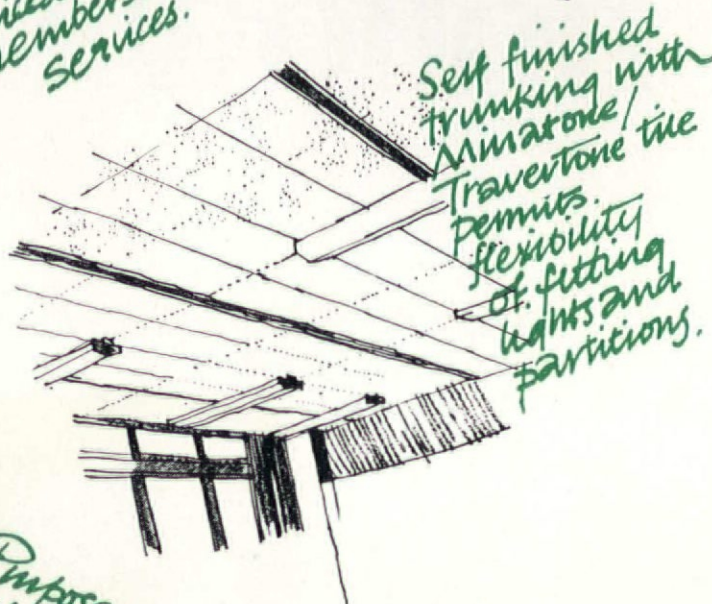 members
services.
Self finished
trunking with
Minatone/
Travertone tile
permits
flexibility
of fitting
lights and
partitions.
Purpose